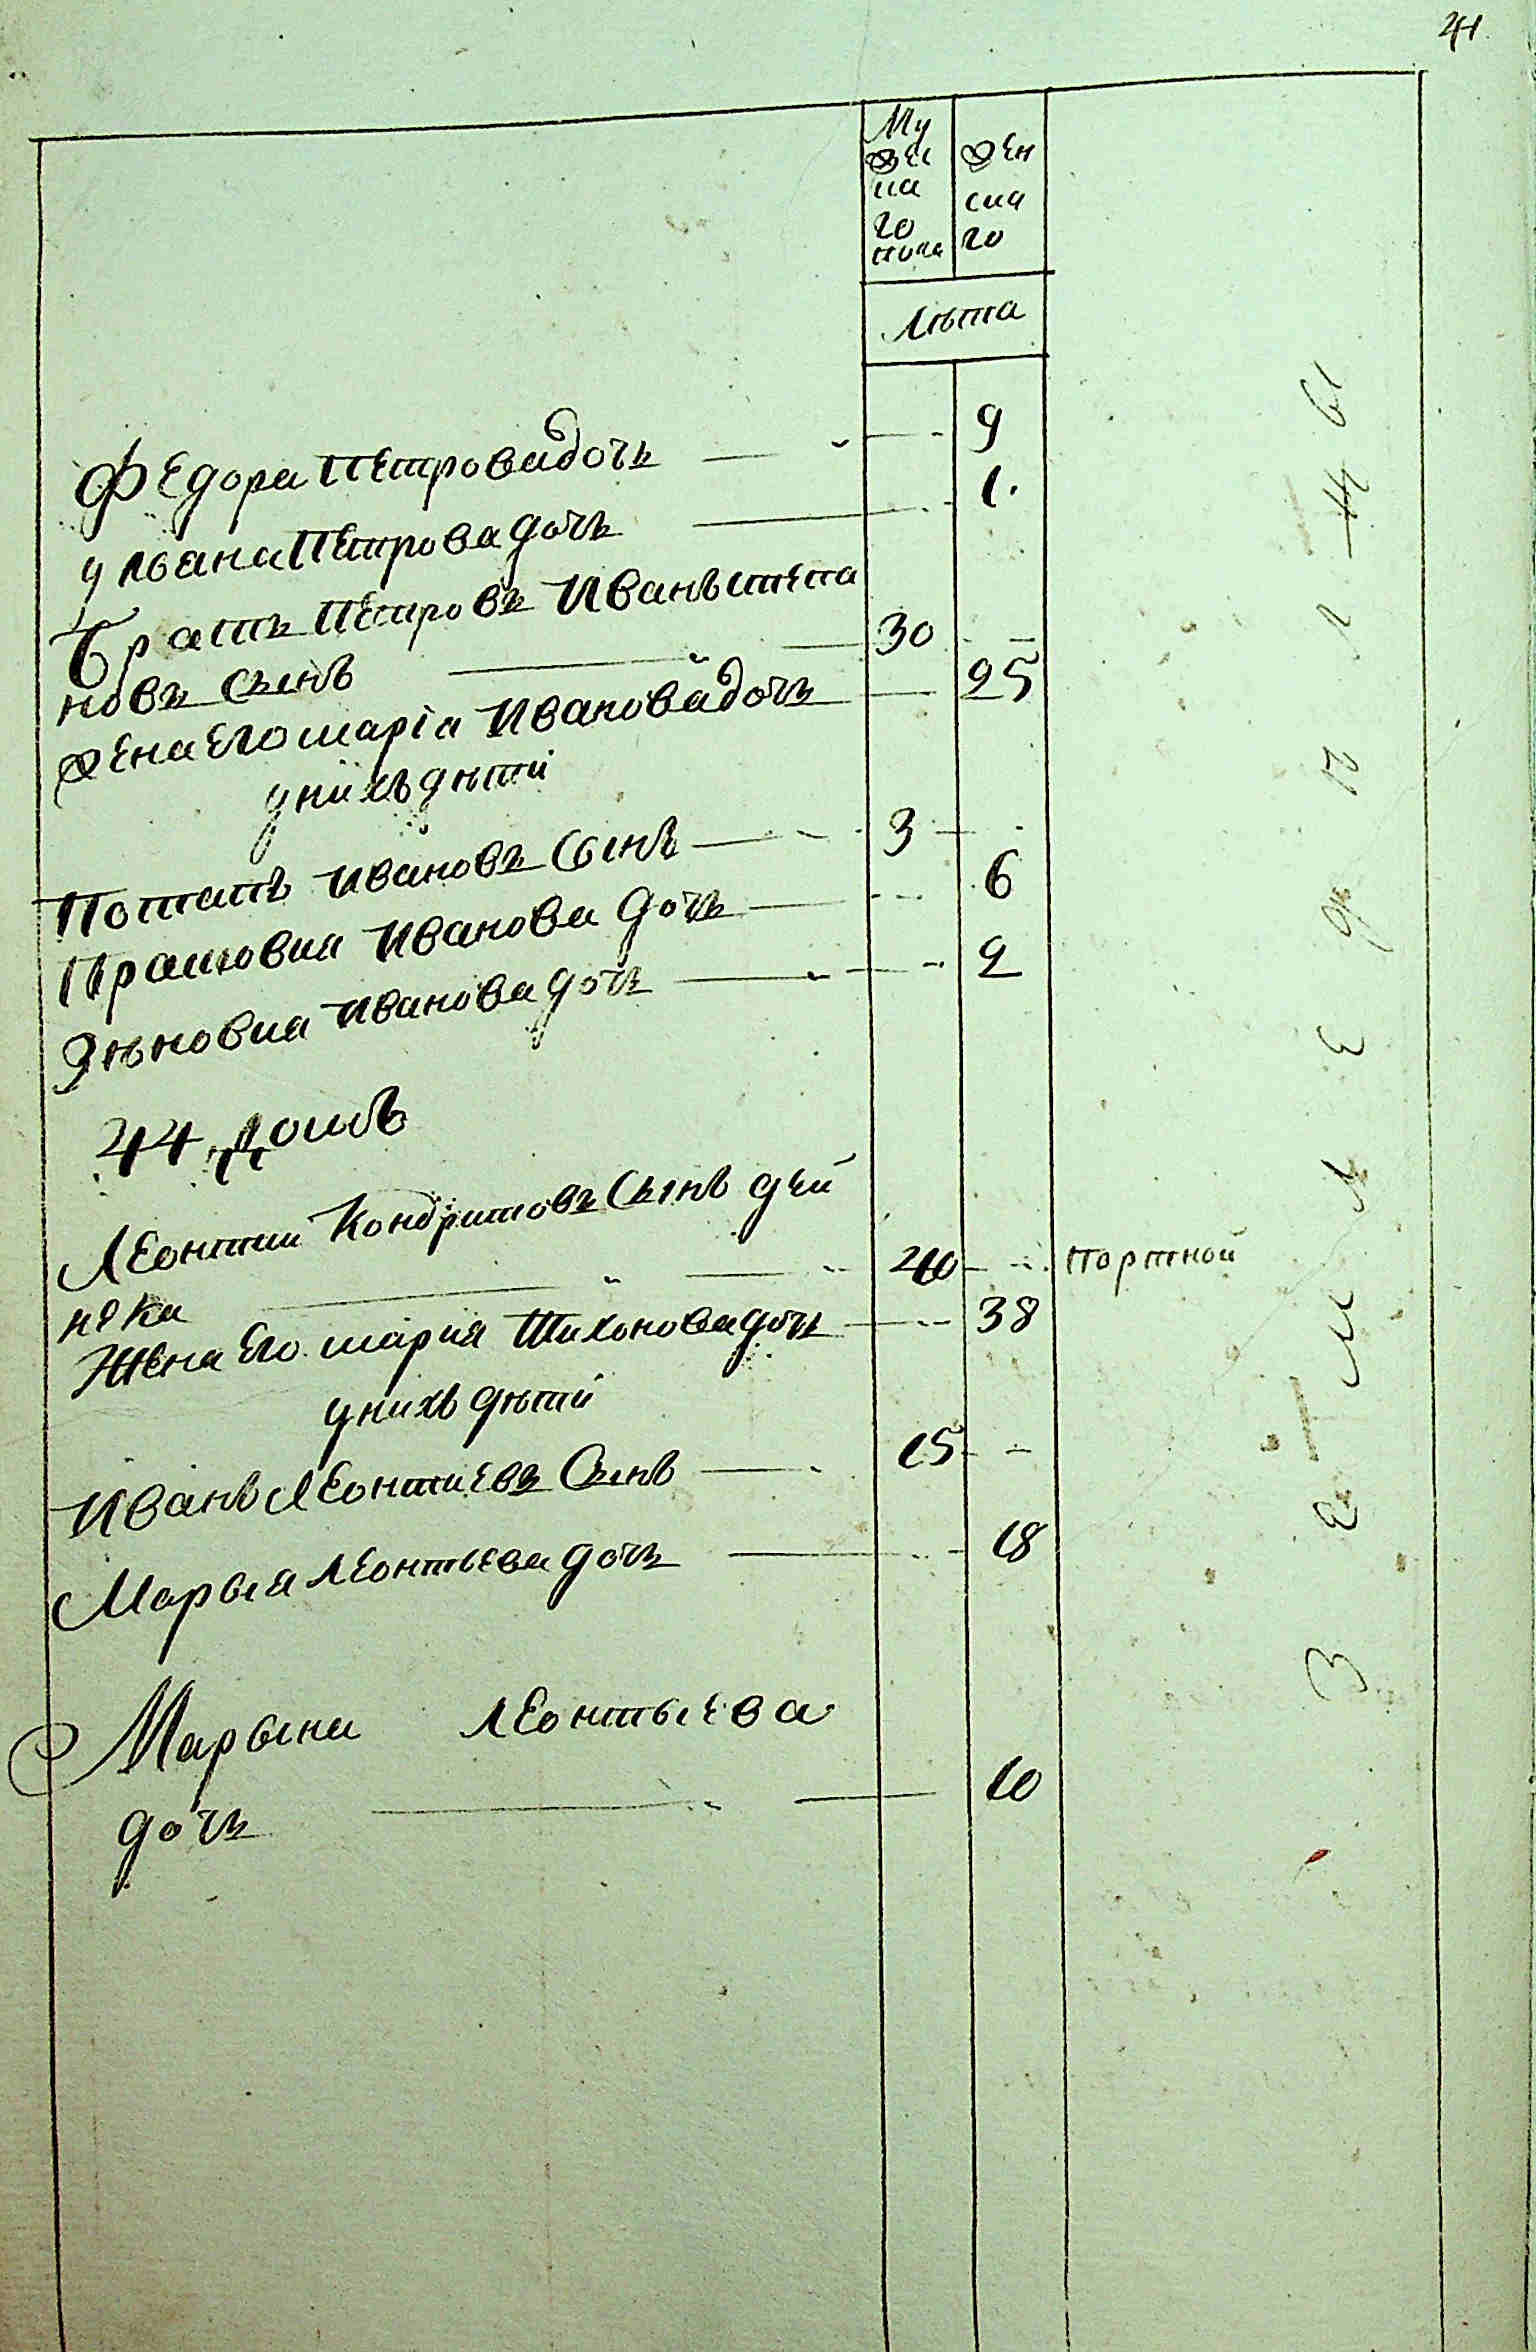 41
Му
жес
ка
го
пола
жен
ска
го
Лѣта
Федора Петрова дочь 9
ульяна Петрова дочь 1
братъ Петровъ Иванъ степа
новъ сынъ 30
жена его марiя Иванова дочь 25
у нихъ дѣти
Потапъ Ивановъ сынъ 3
Прасковия Иванова дочь 6
Зѣновия Иванова дочь 2
44 домъ
Леонтий Кондратовъ сынъ дей
нека 40 портной
Жена его мария Тихонова дочь 38
у нихъ дѣти
Иванъ Леонтиевъ сынъ 15
Марья леонтьева дочь 18
Марьяна леонтьева
дочь 10
З е м л е д